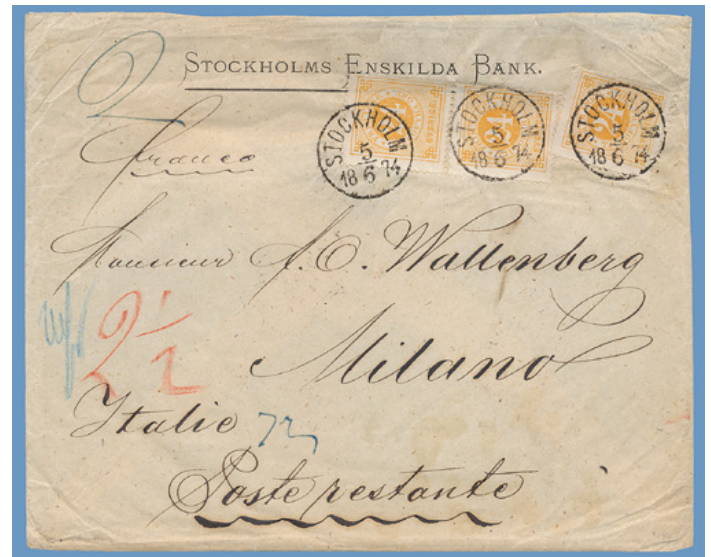 STOCKHOLMS ENSKILDA BANK.
2
STOCKHOLM
5
6
18 74
STOCKHOLM
5
6
18 74
24
STOCKHOLM
5
6
18 74
24
Franco
Monsieur A. O. Wallenberg
2 1/2
Milano
Italie
Poste restante